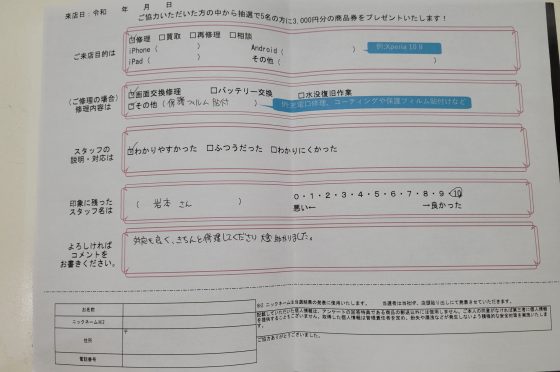 来店日：令和　　年　　月　　日
ご協力いただいた方の中から抽選で5名の方に3,000円分の商品券をプレゼントいたします！
ご来店目的は
☑修理　□買取　□再修理　□相談
iPhone（　　　　）　Android（　　　　）
例:Xperia 10 Ⅱ
iPad（　　　　）　その他（　　　　）
（ご修理の場合）
修理内容は
☑画面交換修理　□バッテリー交換　□水没復旧作業
☑その他（保護フィルム貼付　）
例:充電口修理、コーティングや保護フィルム貼付けなど
スタッフの
説明・対応は
☑わかりやすかった　□ふつうだった　□わかりにくかった
印象に残った
スタッフ名は
（　岩本 さん　）
0・1・2・3・4・5・6・7・8・9・10
悪い←　→良かった
よろしければ
コメントを
お書きください。
対応も良く、きちんと修理してくださり 大変 助かりました。
お名前
ニックネーム※2
住所
〒
電話番号
※2 ニックネームは当選結果の発表に使用いたします。　当選者は当社HP、店頭貼り出しにて発表させていただきます。
ご協力ありがとうございました。